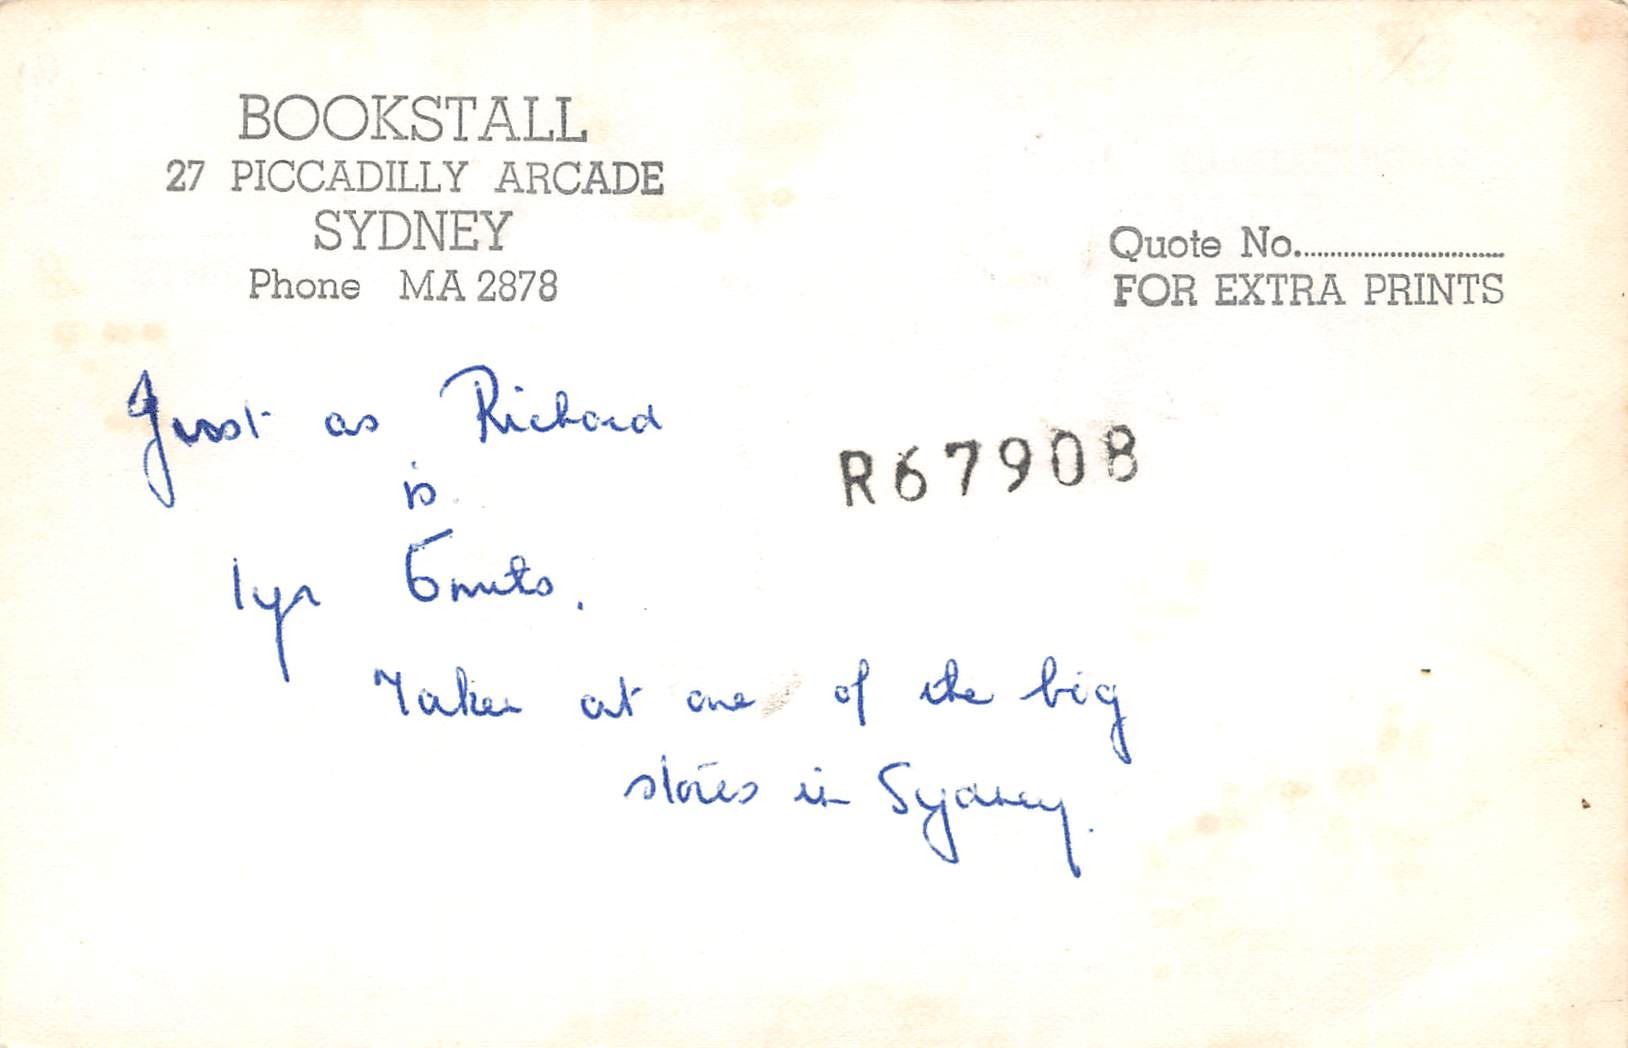 BOOKSTALL
27 PICCADILLY ARCADE
SYDNEY
Phone MA 2878
Quote No..............................
FOR EXTRA PRINTS
Just as Richard
is
R67908
1yr 6mts.
Taken at one of the big
stores in Sydney.